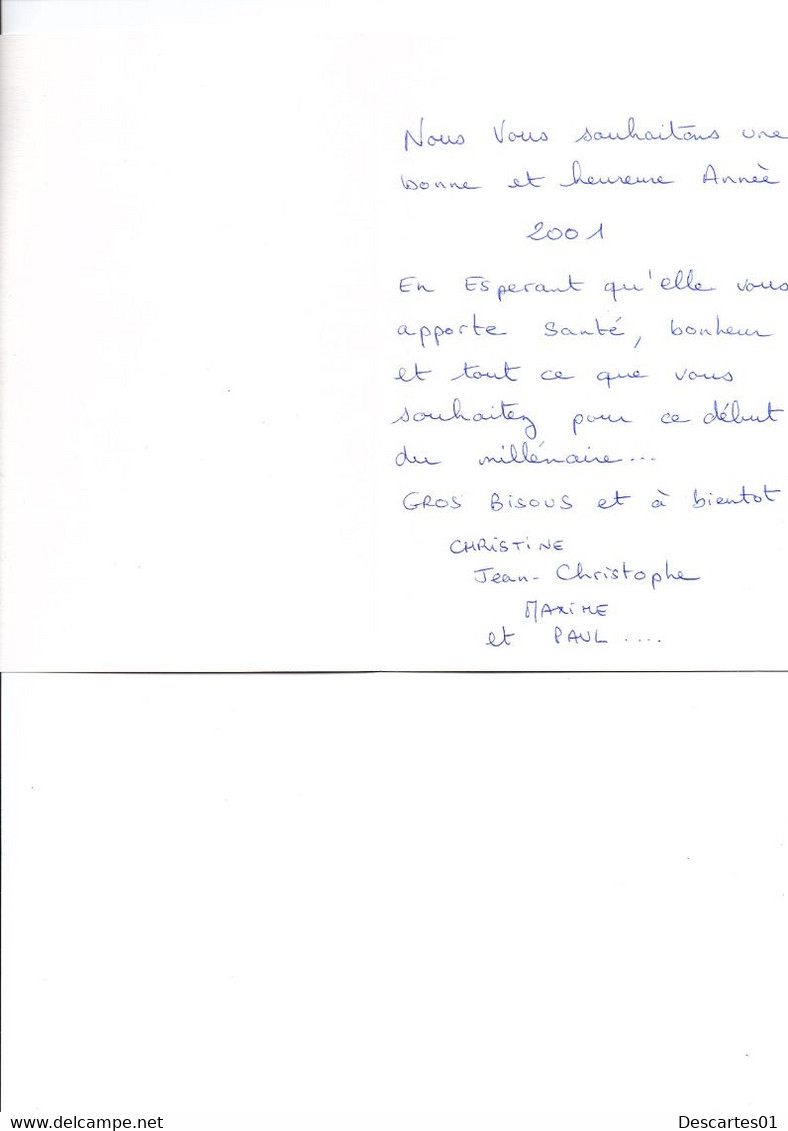 Nous Vous souhaitons une
bonne et heureuse Année
2001
En Esperant qu'elle vous
apporte santé, bonheur
et tout ce que vous
souhaitez pour ce début
du millénaire...
GROS BISOUS et à bientot
CHRISTINE
Jean-Christophe
MAXIME
et PAUL ....
www.delcampe.net
Descartes01